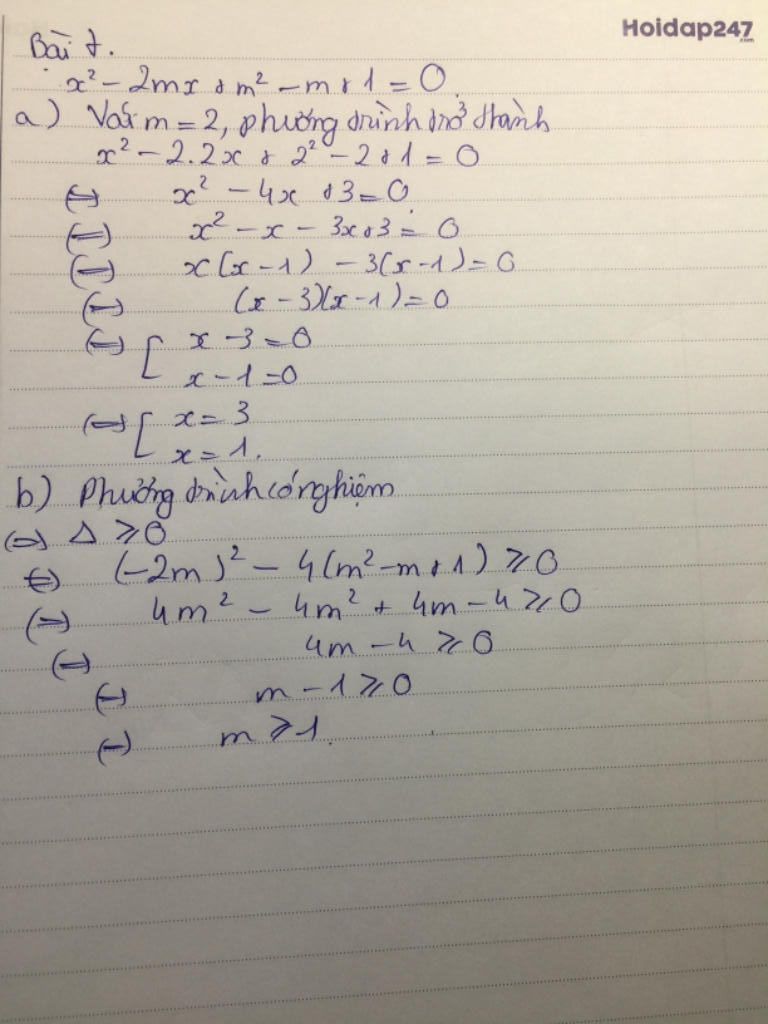 Hoidap247
.com
Bài 7.
x² - 2mx + m² - m + 1 = 0.
a) Với m = 2, phương trình trở thành
x² - 2.2x + 2² - 2 + 1 = 0
⇔ x² - 4x + 3 = 0
⇔ x² - x - 3x + 3 = 0
⇔ x(x - 1) - 3(x - 1) = 0
⇔ (x - 3)(x - 1) = 0
⇔ [ x - 3 = 0
x - 1 = 0
⇔ [ x = 3
x = 1.
b) Phương trình có nghiệm
⇔ Δ ⩾ 0
⇔ (-2m)² - 4(m² - m + 1) ⩾ 0
⇔ 4m² - 4m² + 4m - 4 ⩾ 0
⇔ 4m - 4 ⩾ 0
⇔ m - 1 ⩾ 0
⇔ m ⩾ 1.